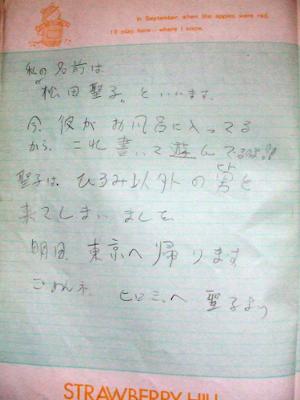 In September, when the apples were red,
I'll play here - where I know.
私の名前は
"松田聖子"といいます。
今、彼がお風呂に入ってる
から、これ書いて遊んでるよ!!
聖子は、ひろみ以外の男と
来てしまいました
明日、東京へ帰ります
ごめんネ
ヒロミへ 聖子より
STRAWBERRY HILL